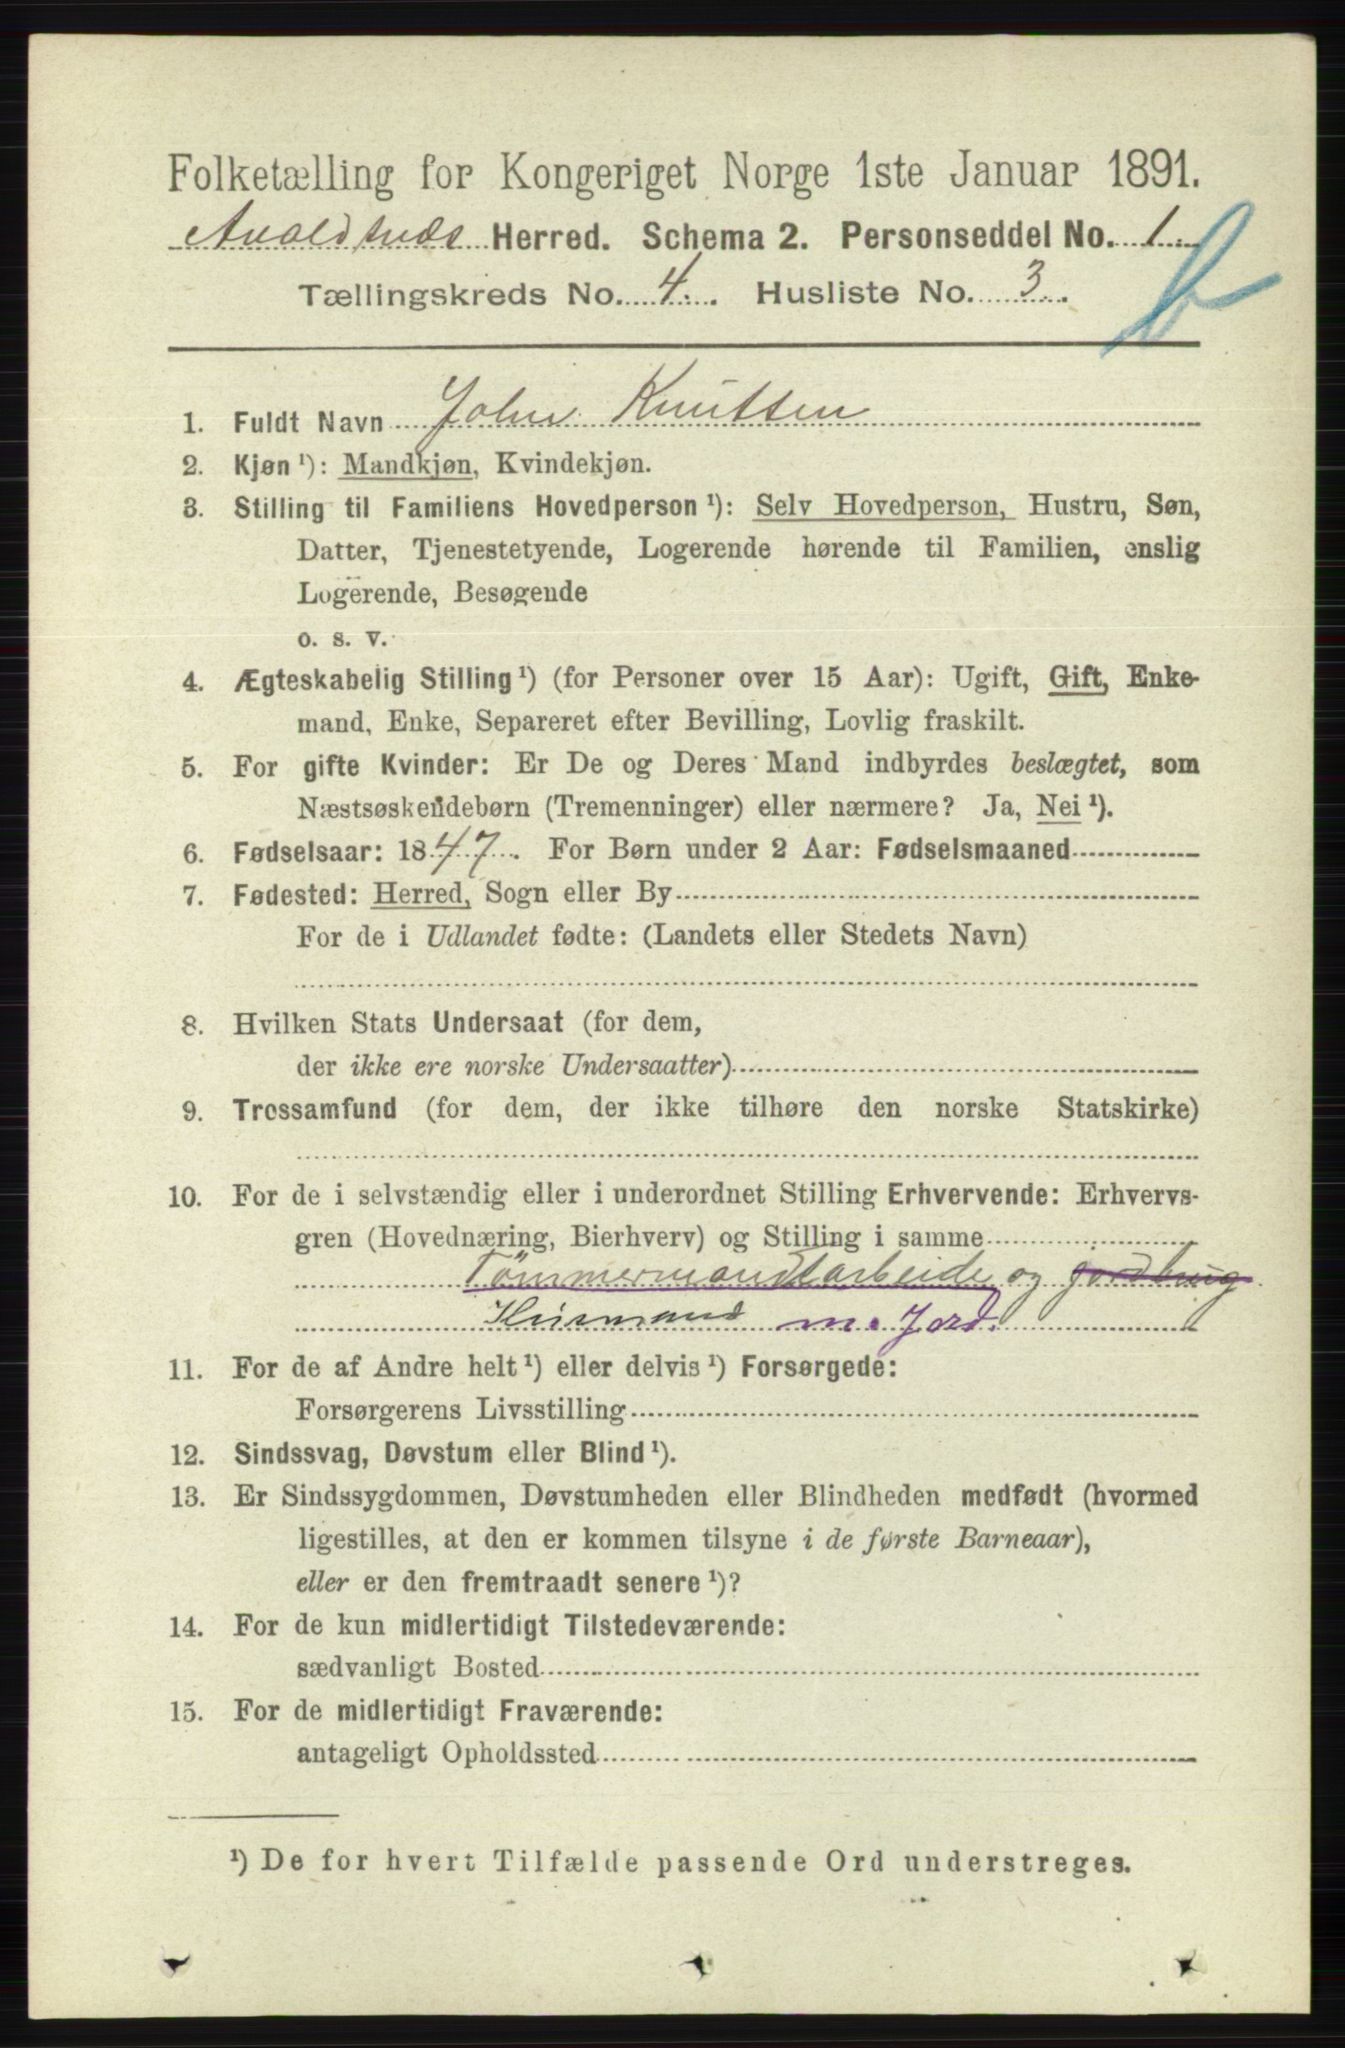 Folketælling for Kongeriget Norge 1ste Januar 1891.
Avaldsnæs Herred. Schema 2. Personseddel No. 1.
Tællingskreds No. 4. Husliste No. 3.
b
1. Fuldt Navn John Knutsen
2. Kjøn ¹): Mandkjøn, Kvindekjøn.
3. Stilling til Familiens Hovedperson ¹): Selv Hovedperson, Hustru, Søn,
Datter, Tjenestetyende, Logerende hørende til Familien, enslig
Logerende, Besøgende
o. s. v.
4. Ægteskabelig Stilling ¹) (for Personer over 15 Aar): Ugift, Gift, Enke-
mand, Enke, Separeret efter Bevilling, Lovlig fraskilt.
5. For gifte Kvinder: Er De og Deres Mand indbyrdes beslægtet, som
Næstsøskendebørn (Tremenninger) eller nærmere? Ja, Nei ¹).
6. Fødselsaar: 1847. For Børn under 2 Aar: Fødselsmaaned
7. Fødested: Herred, Sogn eller By
For de i Udlandet fødte: (Landets eller Stedets Navn)
8. Hvilken Stats Undersaat (for dem,
der ikke ere norske Undersaatter)
9. Trossamfund (for dem, der ikke tilhøre den norske Statskirke)
10. For de i selvstændig eller i underordnet Stilling Erhvervende: Erhvervs-
gren (Hovednæring, Bierhverv) og Stilling i samme
Tömmermandsarbeide og jordbrug
Husmand m. Jord.
11. For de af Andre helt ¹) eller delvis ¹) Forsørgede:
Forsørgerens Livsstilling
12. Sindssvag, Døvstum eller Blind ¹).
13. Er Sindssygdommen, Døvstumheden eller Blindheden medfødt (hvormed
ligestilles, at den er kommen tilsyne i de første Barneaar),
eller er den fremtraadt senere ¹)?
14. For de kun midlertidigt Tilstedeværende:
sædvanligt Bosted
15. For de midlertidigt Fraværende:
antageligt Opholdssted
¹) De for hvert Tilfælde passende Ord understreges.